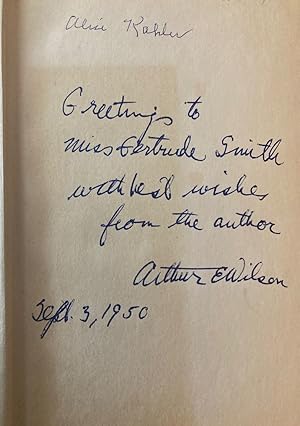 Alice Kahler
Greetings to
Miss Gertrude Smith
with best wishes
from the author
Arthur E Wilson
Sept. 3, 1950